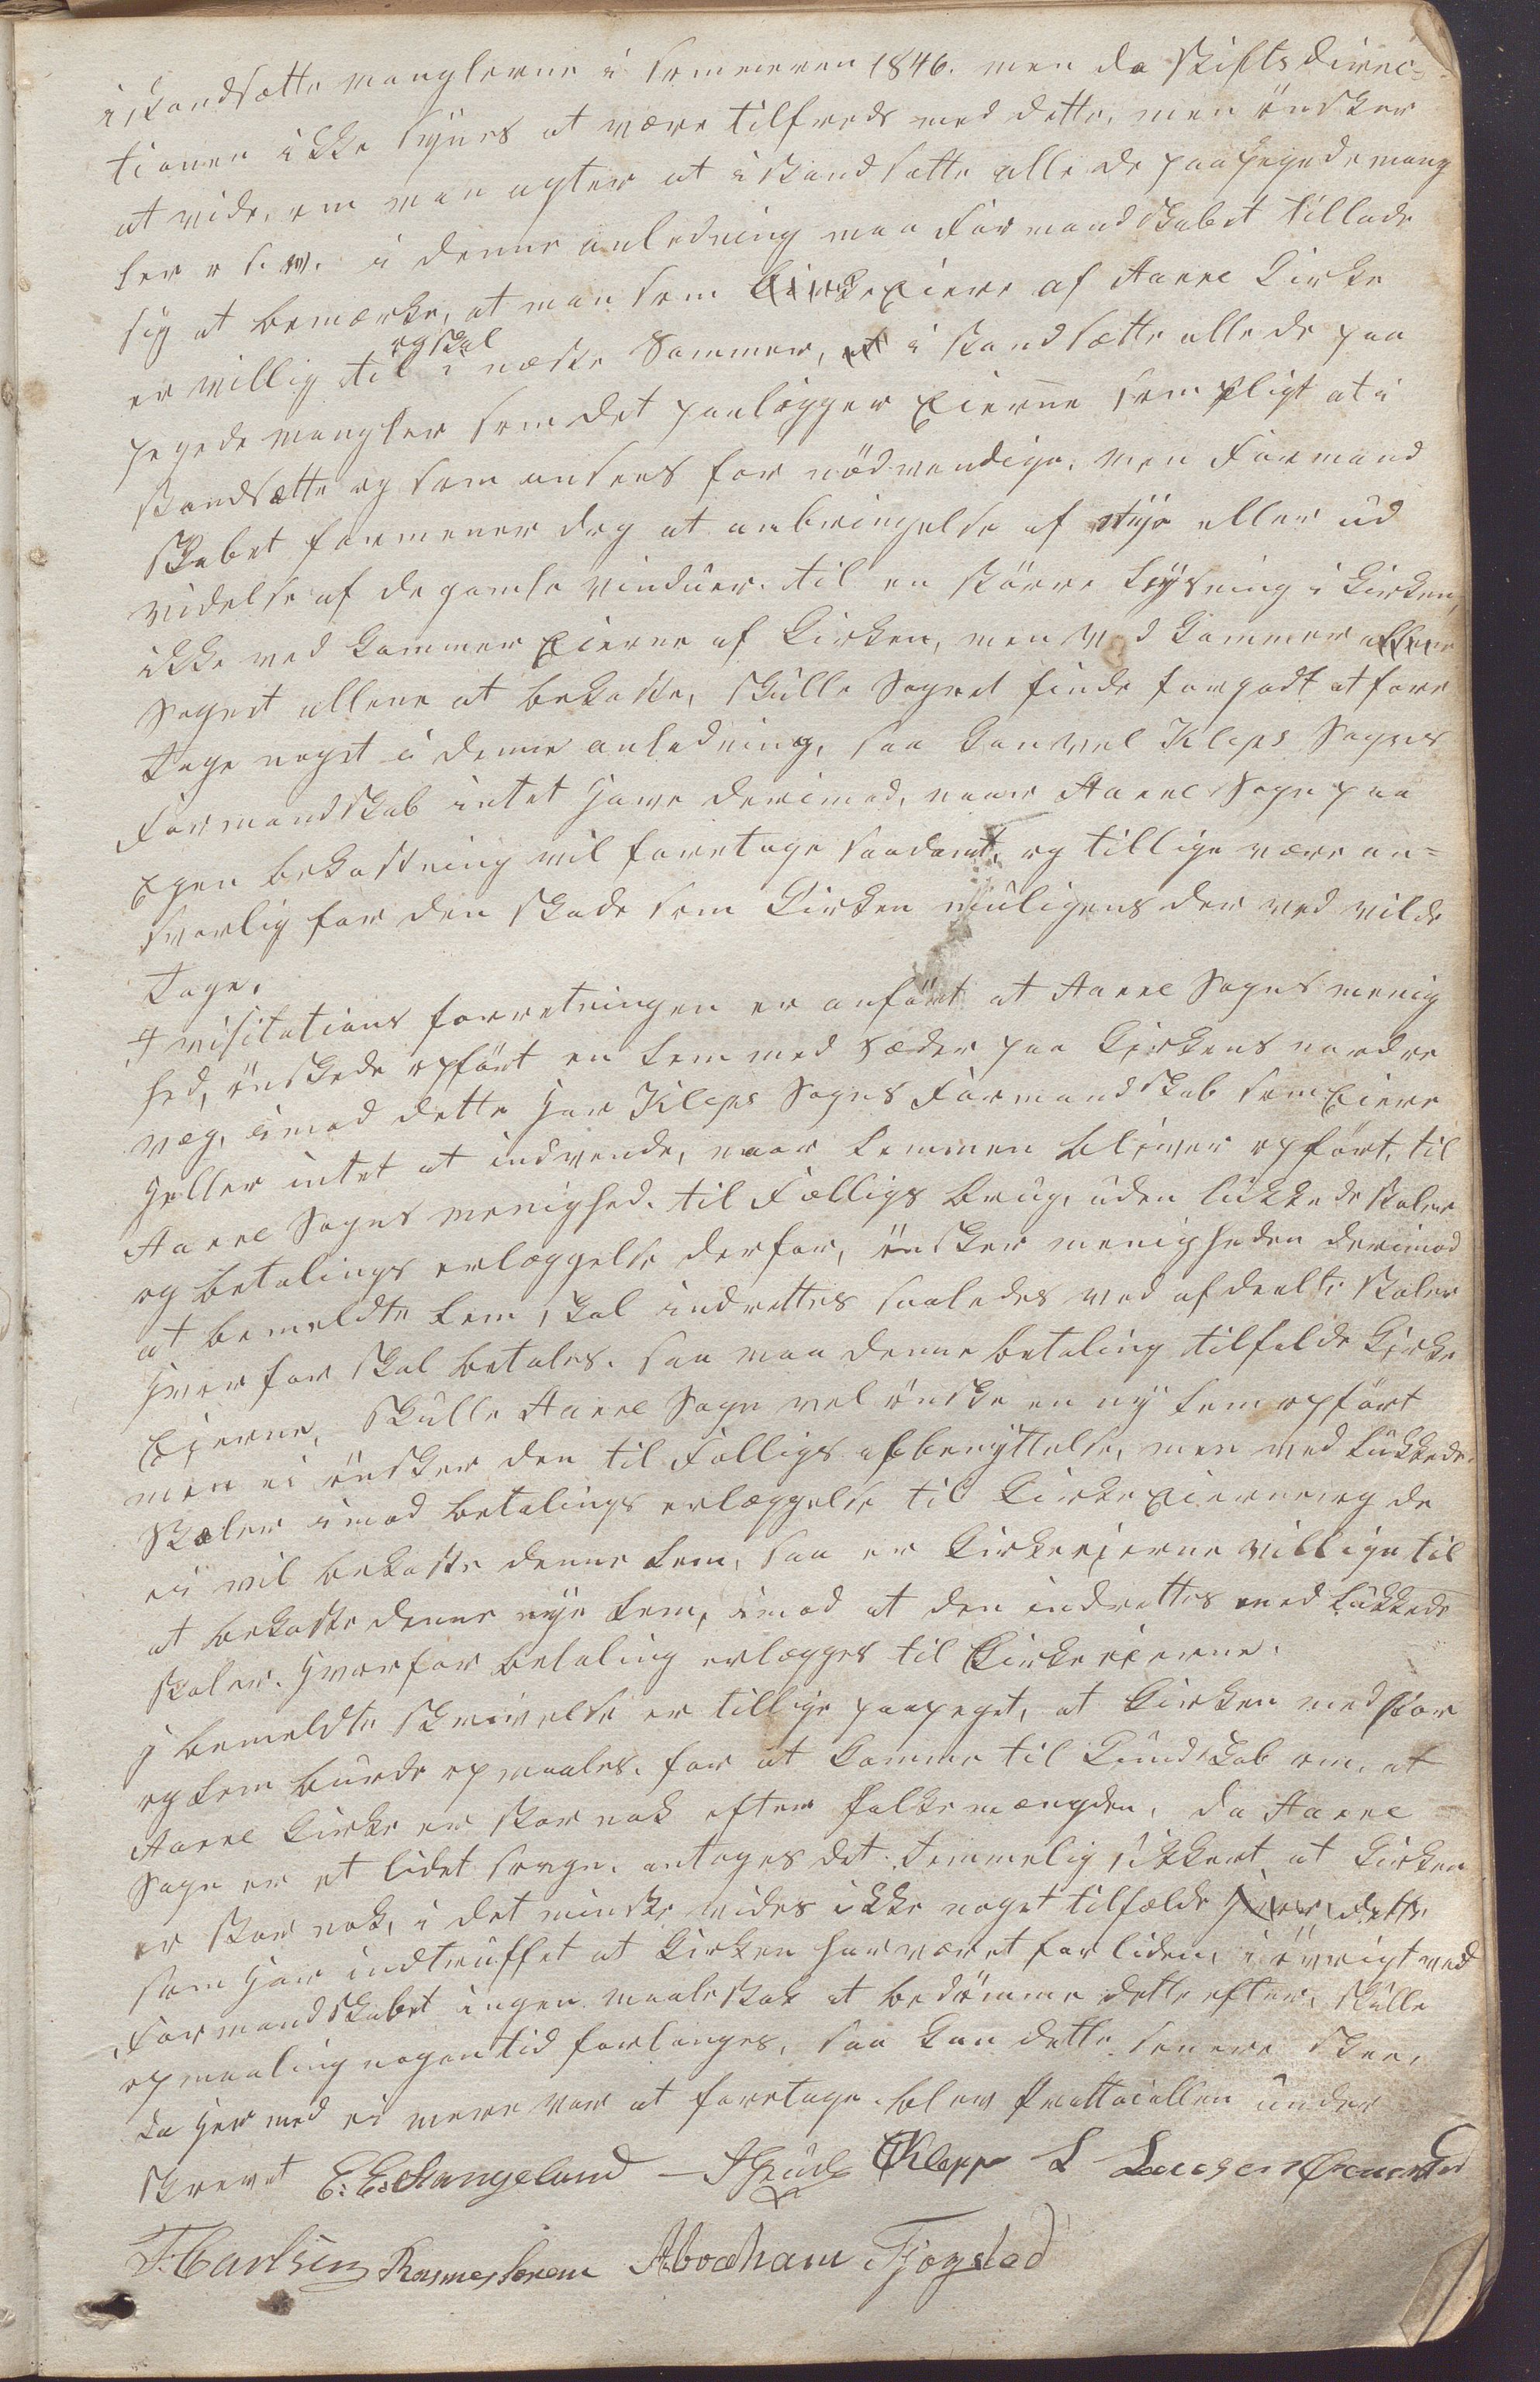 istandsætte manglerne i Sommeren 1846. men da Stiftsdirec-
tionen ikke synes at være tilfreds med dette, men ønsker
at vide, om man agter at istandsætte alle de paapegede mang
ler o s. v. i denne anledning maa Formandskabet tillade
sig at bemærke, at man som Kirkeeiere af Aarre Kirke
er villig til og skal i næste Sommer, at istandsætte alle de paa
pegede mangler som det paaligger Eierne som Pligt at i
standsætte og som ansees for nødvendige. men Formand
skabet formener dog at anbringelse af nye eller ud
videlse af de gamle vinduer til en større Lysning i Kirken,
ikke ved kommer Eierne af Kirken, men ved kommer
Sognet allene at bekoste, skulle Sognet finde forgodt at fore
tage noget i denne anledning, saa kan vel Kleps Sogns
Formandskab intet have derimod, naar Aarre Sogn paa
Egen bekostning vil foretage saadant, og tillige være an-
svarlig for den skade som Kirken muligens der ved vilde
tage.
I visitations forretningen er anført at Aarre Sogns menig
hed, ønskede opført en Lem med Sæder paa Kirkens nordre
væg, imod dette har Kleps Sogns Formandskab som Eiere
heller intet at indvende, naar Lemmen bliver opført, til
Aarre Sogns menighed. til Fælligs brug, uden lukkede stoler
og betalings erlæggelse derfor, ønsker menigheden derimod
at bemeldte Lem skal indrettes saaledes ved afdeelte stoler
hvorfor skal betales. saa maa denne betaling tilfalde Kirke
Eierne, skulle Aarre Sogn vel ønske en ny Lem opført
men ei ønsker den til Fælligs afbenyttelse, men ved lukkede
Stoler imod betalings erlæggelse til Kirke Eierne og de
ei vil bekoste denne Lem, saa er Kirkeeierne villige til
at bekoste denne nye Lem, imod at den indrettes med lukkede
stoler. hvorfor betaling erlægges til Kirkeeierne.
I bemeldte skrivelse er tillige paapeget, at Kirken med Chor
og Lem burde opmaales. for at komme til Kundskab om, at
Aarre Kirke er stor nok efter folkemængden, da Aarre
Sogn er et lidet Sogn. antages det temmelig sikkert at Kirken
er stor nok, i det minste vides ikke noget tilfælde
som har indtruffet at Kirken har været for liden, i øvrigt ved
Formandskabet ingen maalestok at bedømme dette efter, skulle
opmaaling nogentid forlanges, saa kan dette senere skee,
da her med ei mere var at foretage blev Prottocollen under
skrevet E. E. Stangeland Klepp L Laugesen
T. Carlsen Rasmus Abraham Tjøgsted